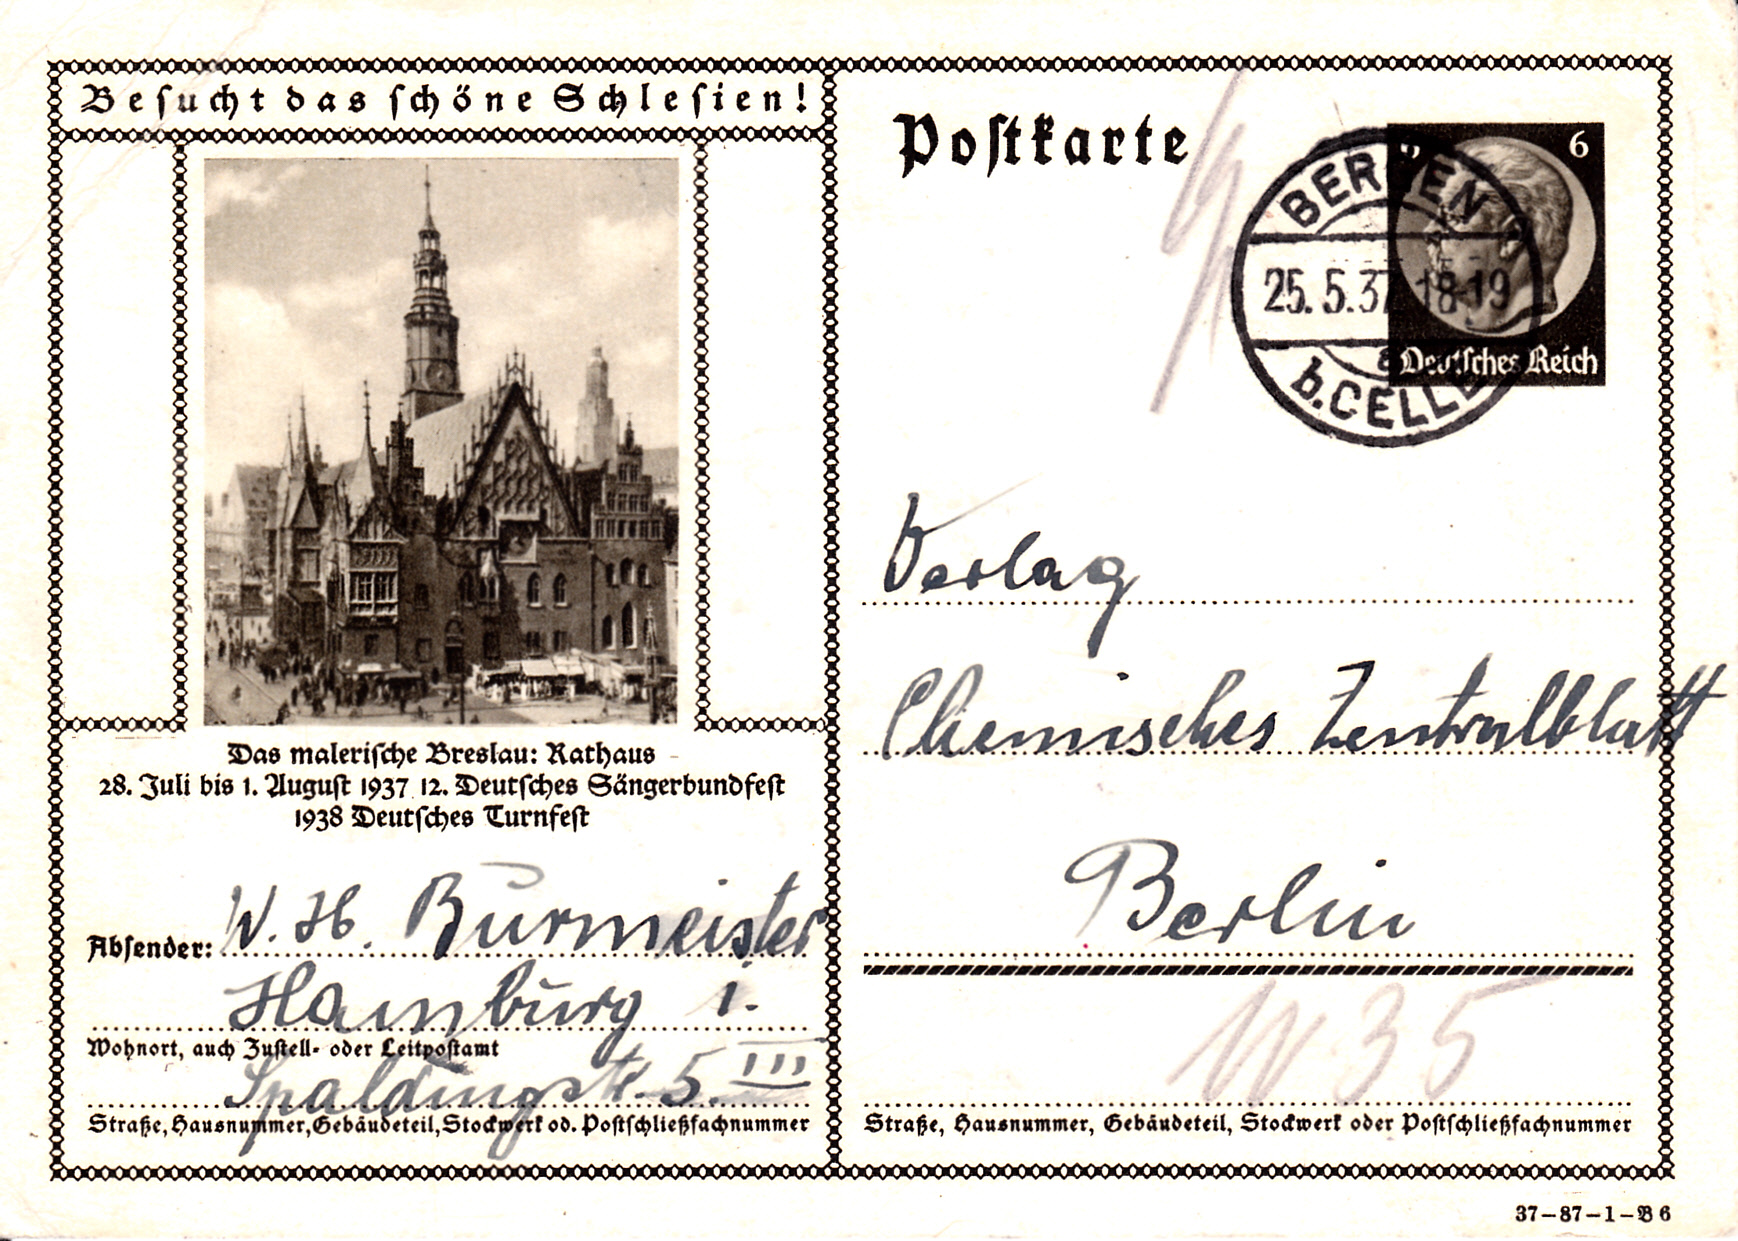 Besucht das schöne Schlesien!
Das malerische Breslau: Rathaus
28. Juli bis 1. August 1937 12. Deutsches Sängerbundfest
1938 Deutsches Turnfest
Absender: W. H. Burmeister
Hamburg 1.
Wohnort, auch Zustell- oder Leitpostamt
Spaldingstr. 5 III
Straße, Hausnummer, Gebäudeteil, Stockwerk od. Postschließfachnummer
Postkarte
6
BERGEN
25.5.37 18-19
a
b. CELLE
Deutsches Reich
Verlag
Chemisches Zentralblatt
Berlin
W 35
Straße, Hausnummer, Gebäudeteil, Stockwerk oder Postschließfachnummer
37-87-1-B 6